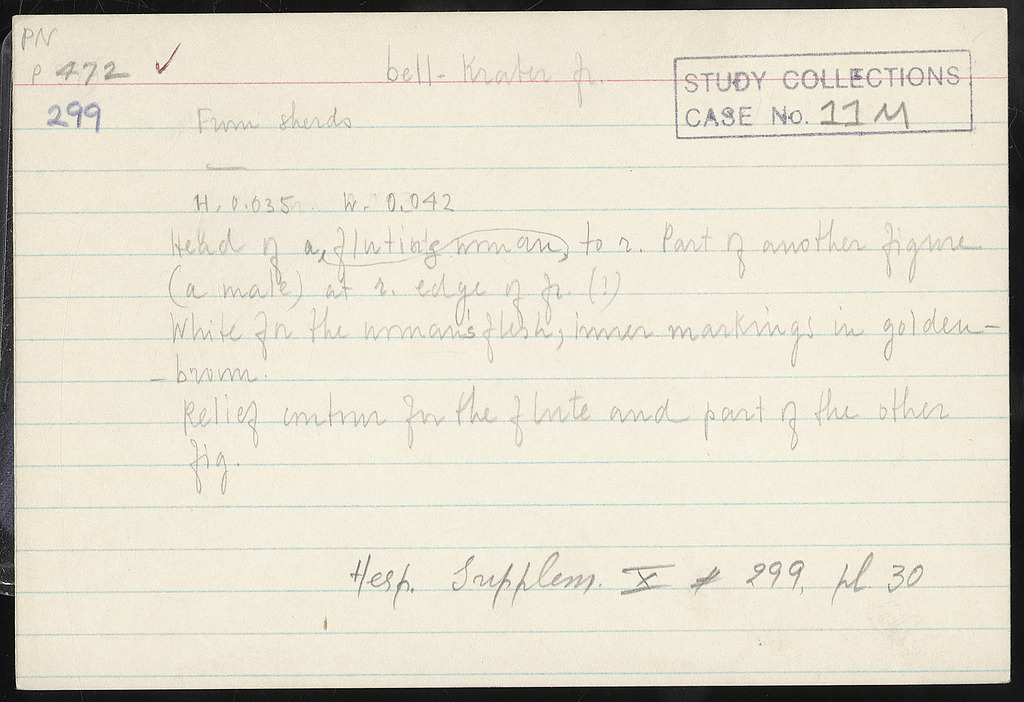 PN
P 472 ✓ bell-Krater fr.
STUDY COLLECTIONS
CASE No. 11 M
299
From sherds
H. 0.035 W. 0.042
Head of a fluting woman, to r. Part of another figure
(a male) at r. edge of fr. (!)
White for the woman's flesh; inner markings in golden-
-brown.
Relief contour for the flute and part of the other
fig.
Hesp. Supplem. X # 299, pl 30